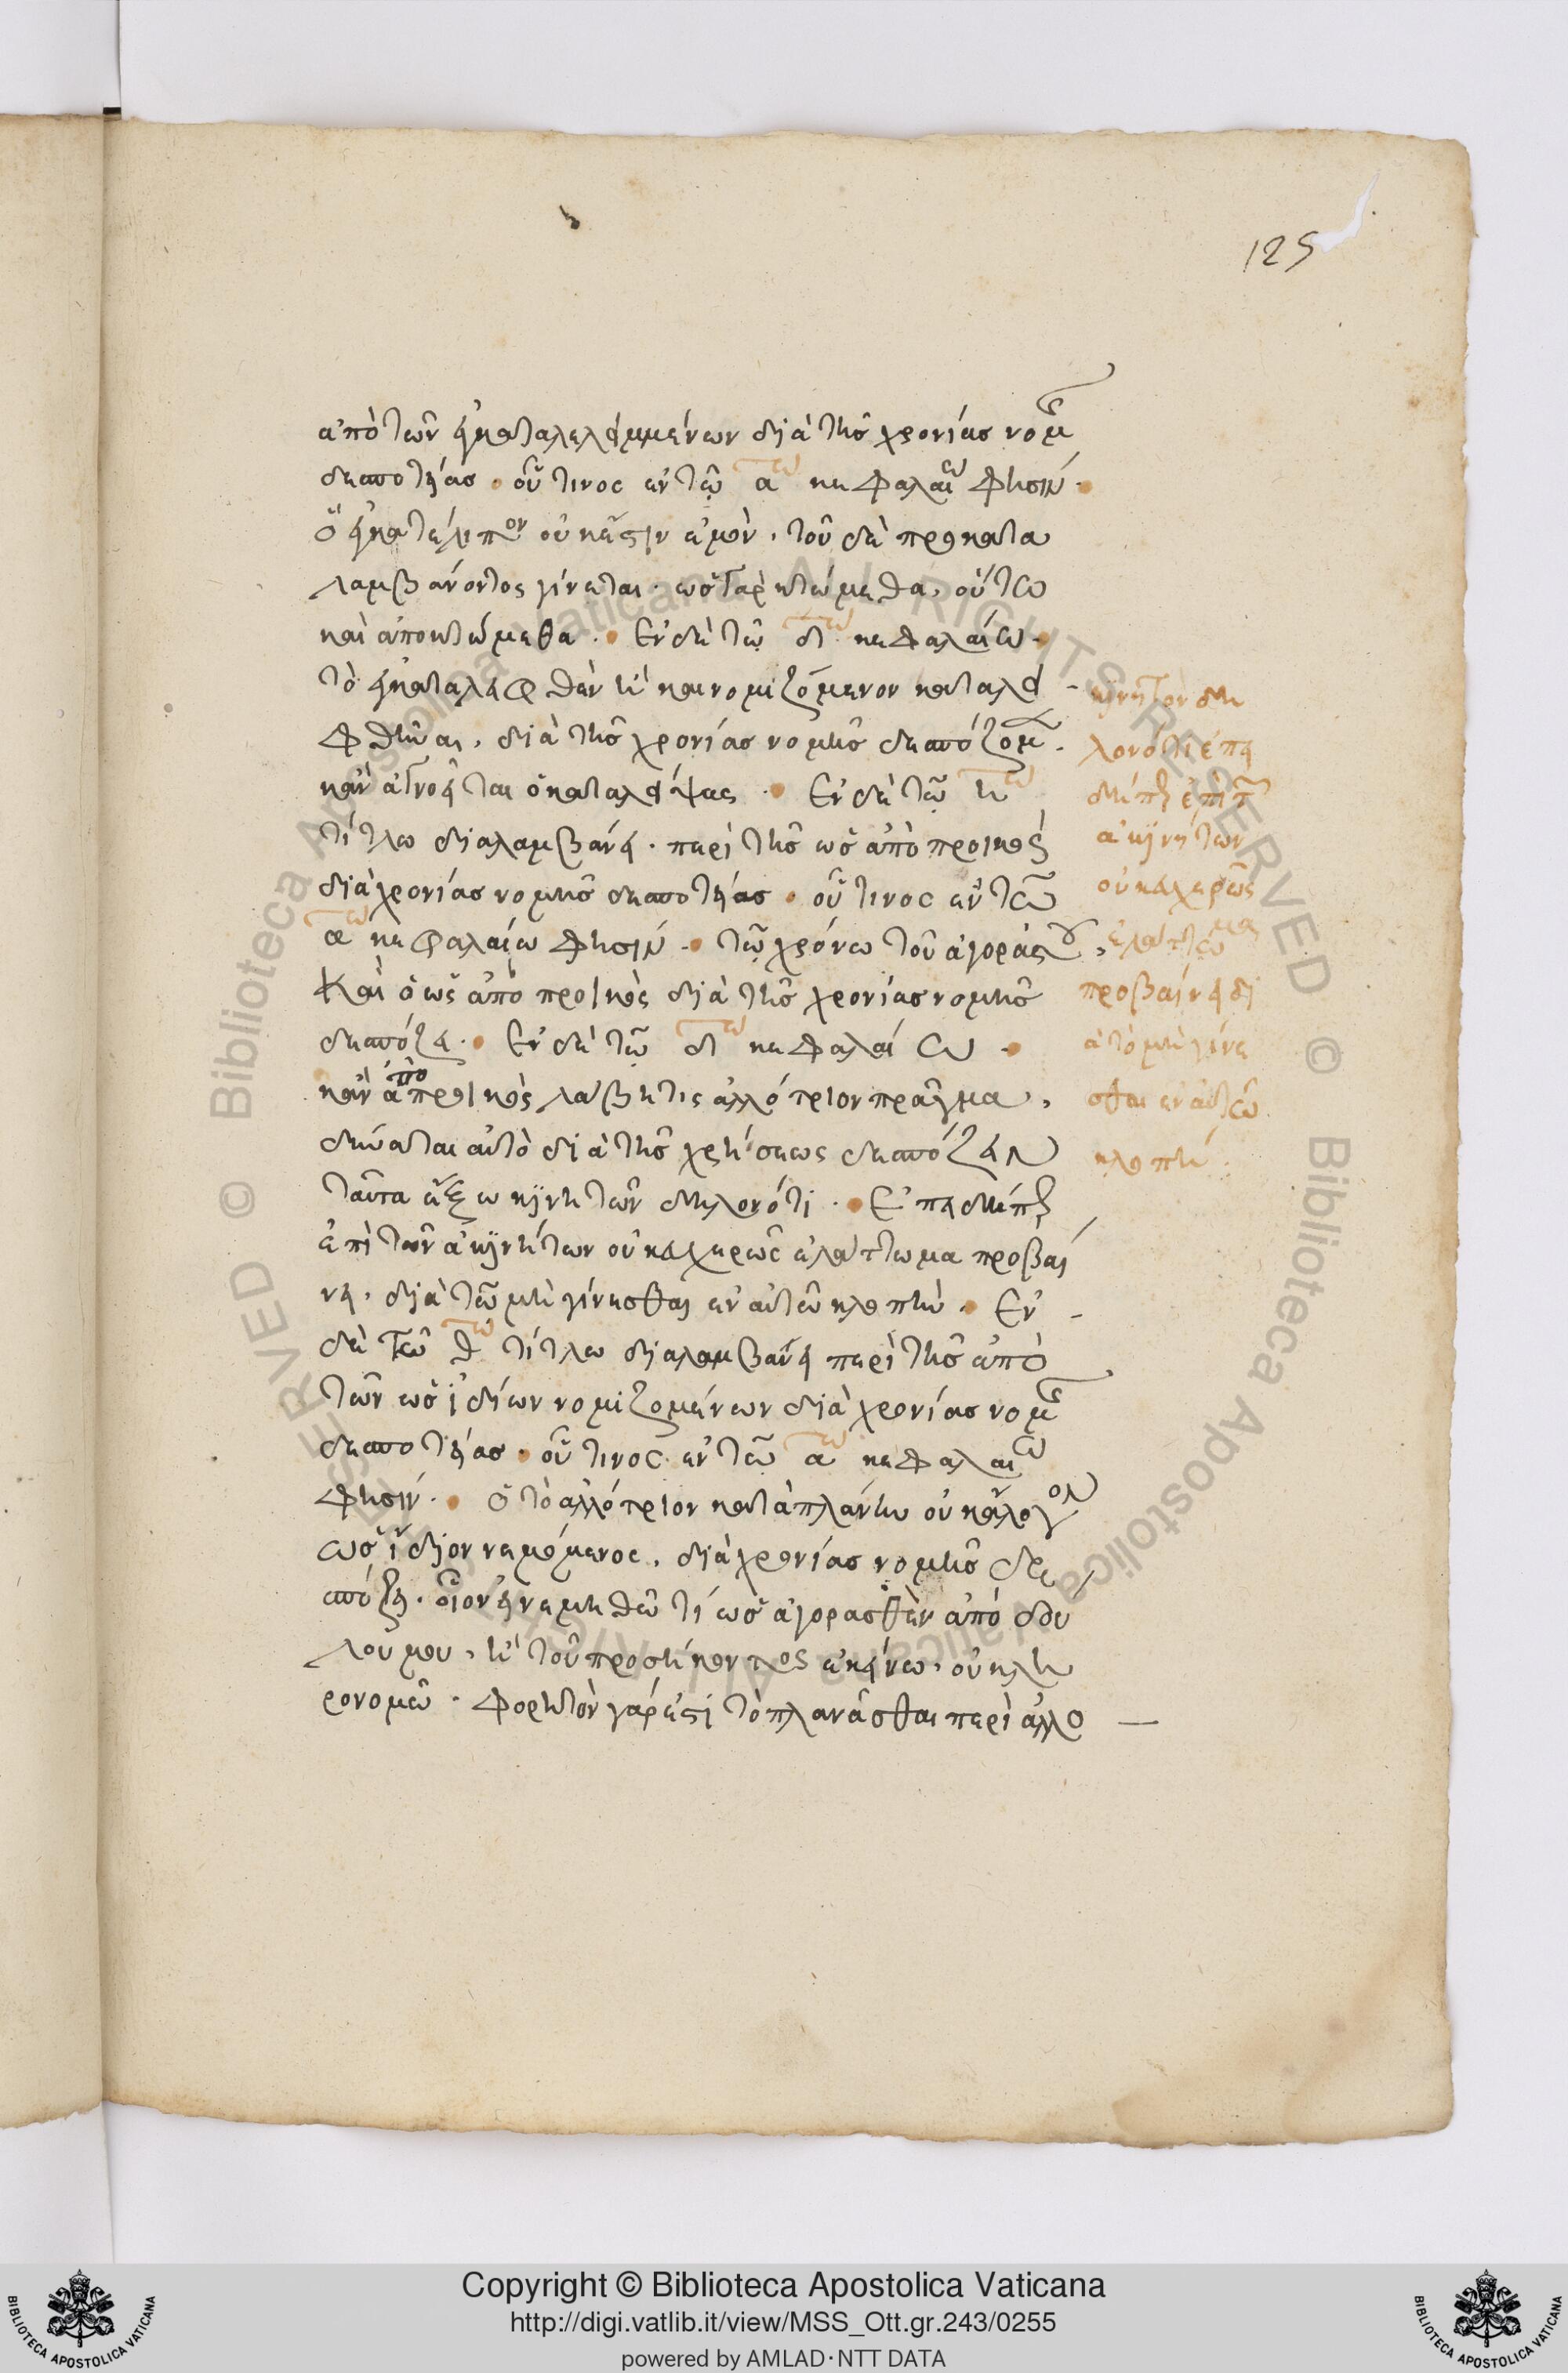 125
ἀπὸ τῶν ἐγκαταλελειμμένων διὰ τῆς χρονίας νομῆς
δεσποτείας · οὗ τινος ἐν τῷ α^τω κεφαλαίω φησίν ·
ὃ ἐγκατέλιπον οὐκέστιν ἐμὸν · τοῦ δὲ προκατα
λαμβάνοντος γίνεται · ὡς γὰρ κτώμεθα, οὕτω
καὶ ἀποκτώμεθα · Ἐν δὲ τῷ δ^τω κεφαλαίω ·
τὸ ἐγκαταλειφθὲν ἢ καὶ νομιζόμενον καταλει
φθῆναι, διὰ τῆς χρονίας νομῆς δεσπόζομεν ·
κἂν ἀγνοεῖται ὁ καταλείψας · Ἐν δὲ τῷ η^τω
τίτλω διαλαμβάνει · περὶ τῆς ὡς ἀπὸ προικὸς
διὰ χρονίας νομῆς δεσποτείας · οὗ τινος ἐν τῷ
α^τω κεφαλαίω φησίν · τῷ χρόνω τοῦ ἀγοραστοῦ,
Καὶ ὁ ὡς ἀπὸ προικὸς διὰ τῆς χρονίας νομῆς
δεσπόζει · Ἐν δὲ τῷ δ^τω κεφαλαίω ·
κἂν ἀπὸ προικὸς λάβη τις ἀλλότριον πρᾶγμα,
δύναται αὐτὸ διὰ τῆς χρήσεως δεσπόζειν
ταῦτα ἔξω κινητῶν δηλονότι · Ἐπειδήπερ
ἐπὶ τῶν ἀκινήτων οὐκ εὐχερῶς ἐλάττωμα προβαί
νει, διὰ τῶ μὴ γίνεσθαι ἐν αὐτῶ κλοπήν · Ἐν
δὲ τῷ θ^τω τίτλω διαλαμβάνει περὶ τῆς ἀπὸ
τῶν ὡς ἰδίων νομιζομένων διὰ χρονίας νομῆς
δεσποτείας · οὗ τινος ἐν τῷ α^τω κεφαλαίω
φησίν · ὁ τὸ ἀλλότριον κατὰ πλάνην οὐκ εὔλογον
ὡς ἴδιον νεμόμενος, διὰ χρονίας νομῆς δε
σπόζει · οἷον ἐὰν νεμηθῶ τί ὡς ἀγορασθὲν ἀπὸ δού
λου μου, ἢ τοῦ προσήκοντος ἐκείνω, οὐ κλη
ρονομῶ · φορητὸν γάρ ἐστι τὸ πλανᾶσθαι περὶ ἀλλο
κινητὸν δη
λονότι ἐπει
δήπερ ἐπὶ τῶν
ἀκινήτων
οὐκ εὐχερῶς
ἐλάττωμα
προβαίνει δι
ὰ τὸ μὴ γίνε
σθαι ἐν αὐτῶ
κλοπή ·
Copyright © Biblioteca Apostolica Vaticana
http://digi.vatlib.it/view/MSS_Ott.gr.243/0255
powered by AMLAD·NTT DATA